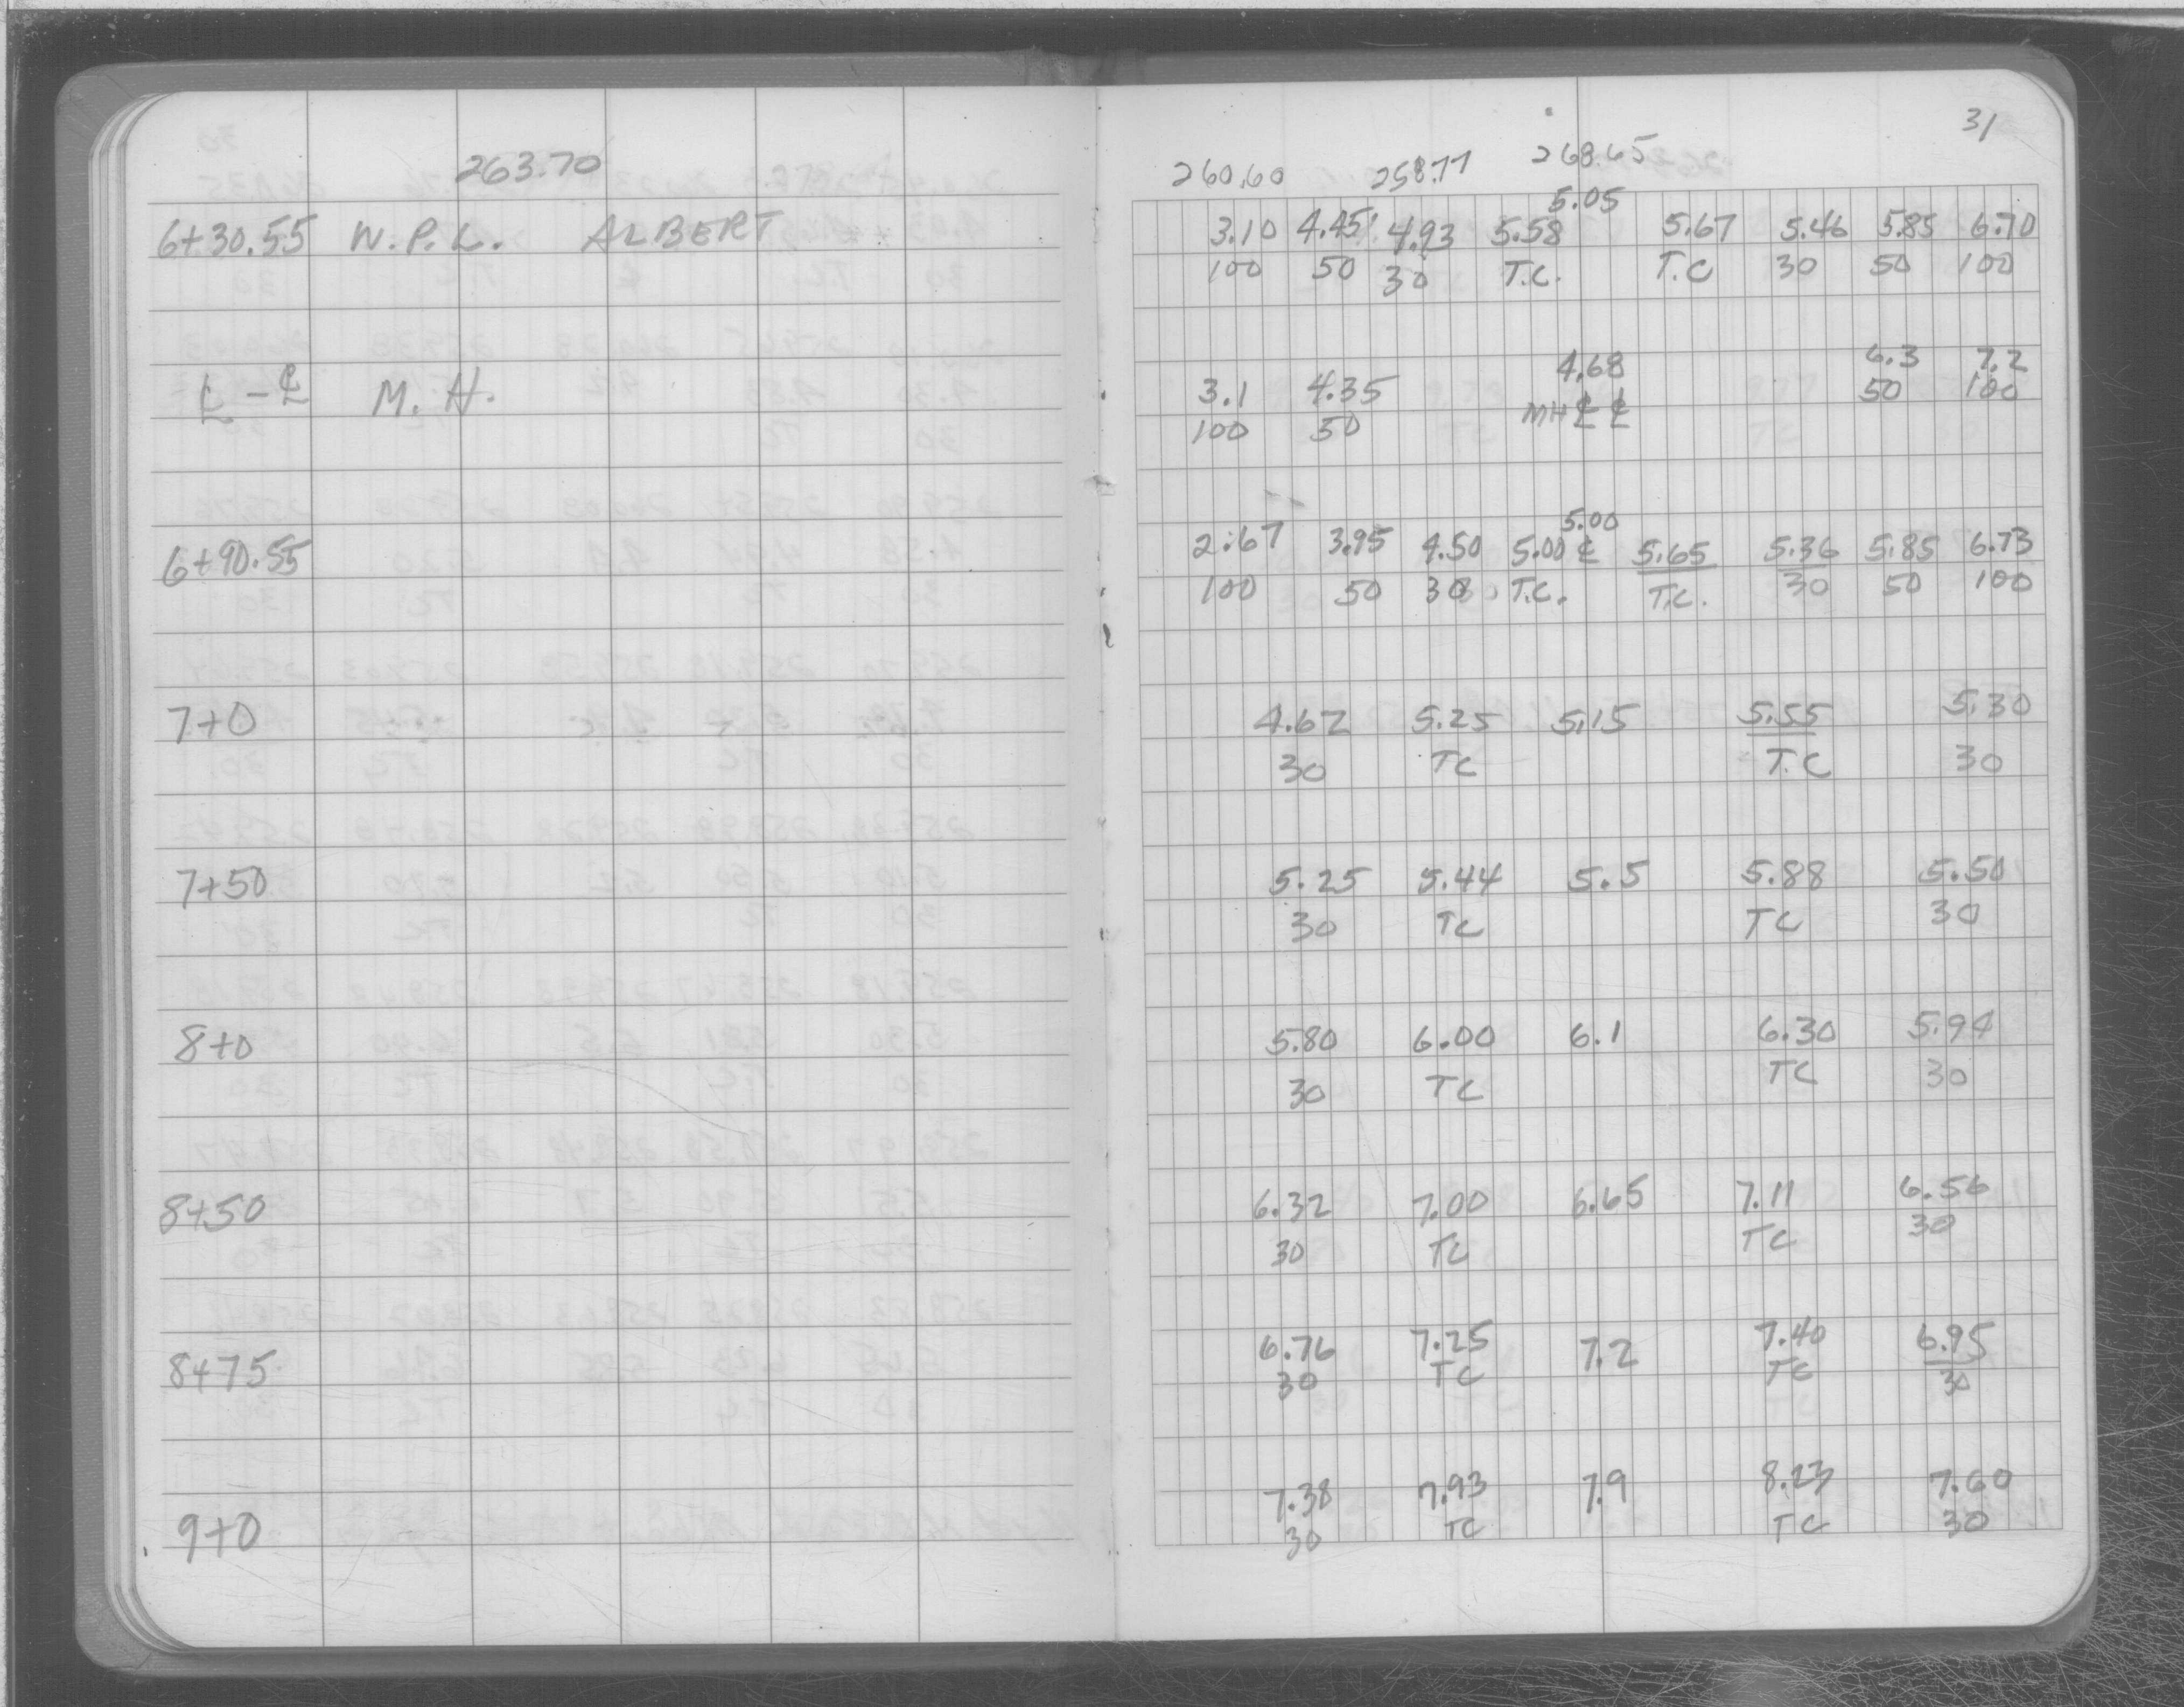 31
263.70
260.60 258.77 268.65
5.05
6+30.55 W.P.L. ALBERT 3.10 4.45 4.93 5.58 5.67 5.46 5.85 6.70
100 50 30 T.C. T.C 30 50 100
4.68 6.3 7.2
℄ - ℄ M.H. 3.1 4.35 50 100
100 50 MH ℄ ℄
5.00
6+90.55 2.67 3.95 4.50 5.00 ℄ 5.65 5.36 5.85 6.73
100 50 30 T.C. T.C. 30 50 100
7+0 4.62 5.25 5.15 5.55 5.30
30 TC T.C 30
7+50 5.25 5.44 5.5 5.88 5.50
30 TC TC 30
8+0 5.80 6.00 6.1 6.30 5.94
30 TC TC 30
8+50 6.32 7.00 6.65 7.11 6.56
30 TC TC 30
8+75 6.76 7.25 7.2 7.40 6.95
30 TC TC 30
9+0 7.38 7.93 7.9 8.23 7.60
30 TC TC 30